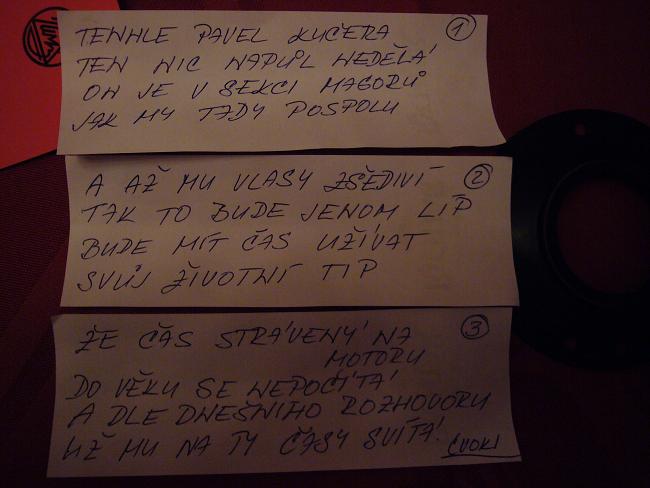 1
TENHLE PAVEL KUČERA
TEN NIC NAPŮL NEDĚLÁ
ON JE V SEKCI MAGORŮ
JAK MY TADY POSPOLU
2
A AŽ MU VLASY ZŠEDIVÍ
TAK TO BUDE JENOM LÍP
BUDE MÍT ČAS UŽÍVAT
SVŮJ ŽIVOTNÍ TIP
3
ŽE ČAS STRÁVENÝ NA
MOTORU
DO VĚKU SE NEPOČÍTÁ
A DLE DNEŠNÍHO ROZHOVORU
UŽ MU NA TY ČASY SVÍTÁ!
CVOKI